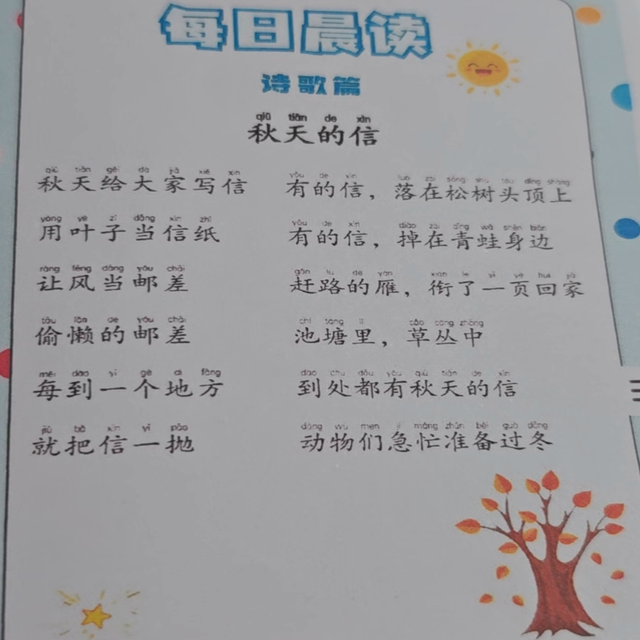 每日晨读
诗歌篇
qiū tiān de xìn
秋天的信
qiū tiān gěi dà jiā xiě xìn
秋天给大家写信
yòng yè zi dāng xìn zhǐ
用叶子当信纸
ràng fēng dāng yóu chāi
让风当邮差
偷懒的邮差
měi dào yí gè dì fāng
每到一个地方
jiù bǎ xìn yì pāo
就把信一抛
有的信，落在松树头顶上
yǒu de xìn
有的信，掉在青蛙身边
gǎn lù de yàn
赶路的雁，衔了一页回家
chí táng lǐ cǎo cóng zhōng
池塘里，草丛中
dào chù dōu yǒu qiū tiān de xìn
到处都有秋天的信
dòng wù men jí máng zhǔn bèi guò dōng
动物们急忙准备过冬